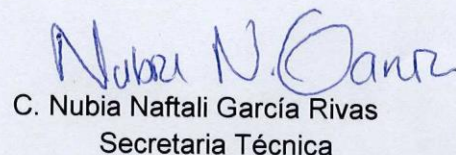 Nubia N. Garcia
C. Nubia Naftali García Rivas
Secretaria Técnica